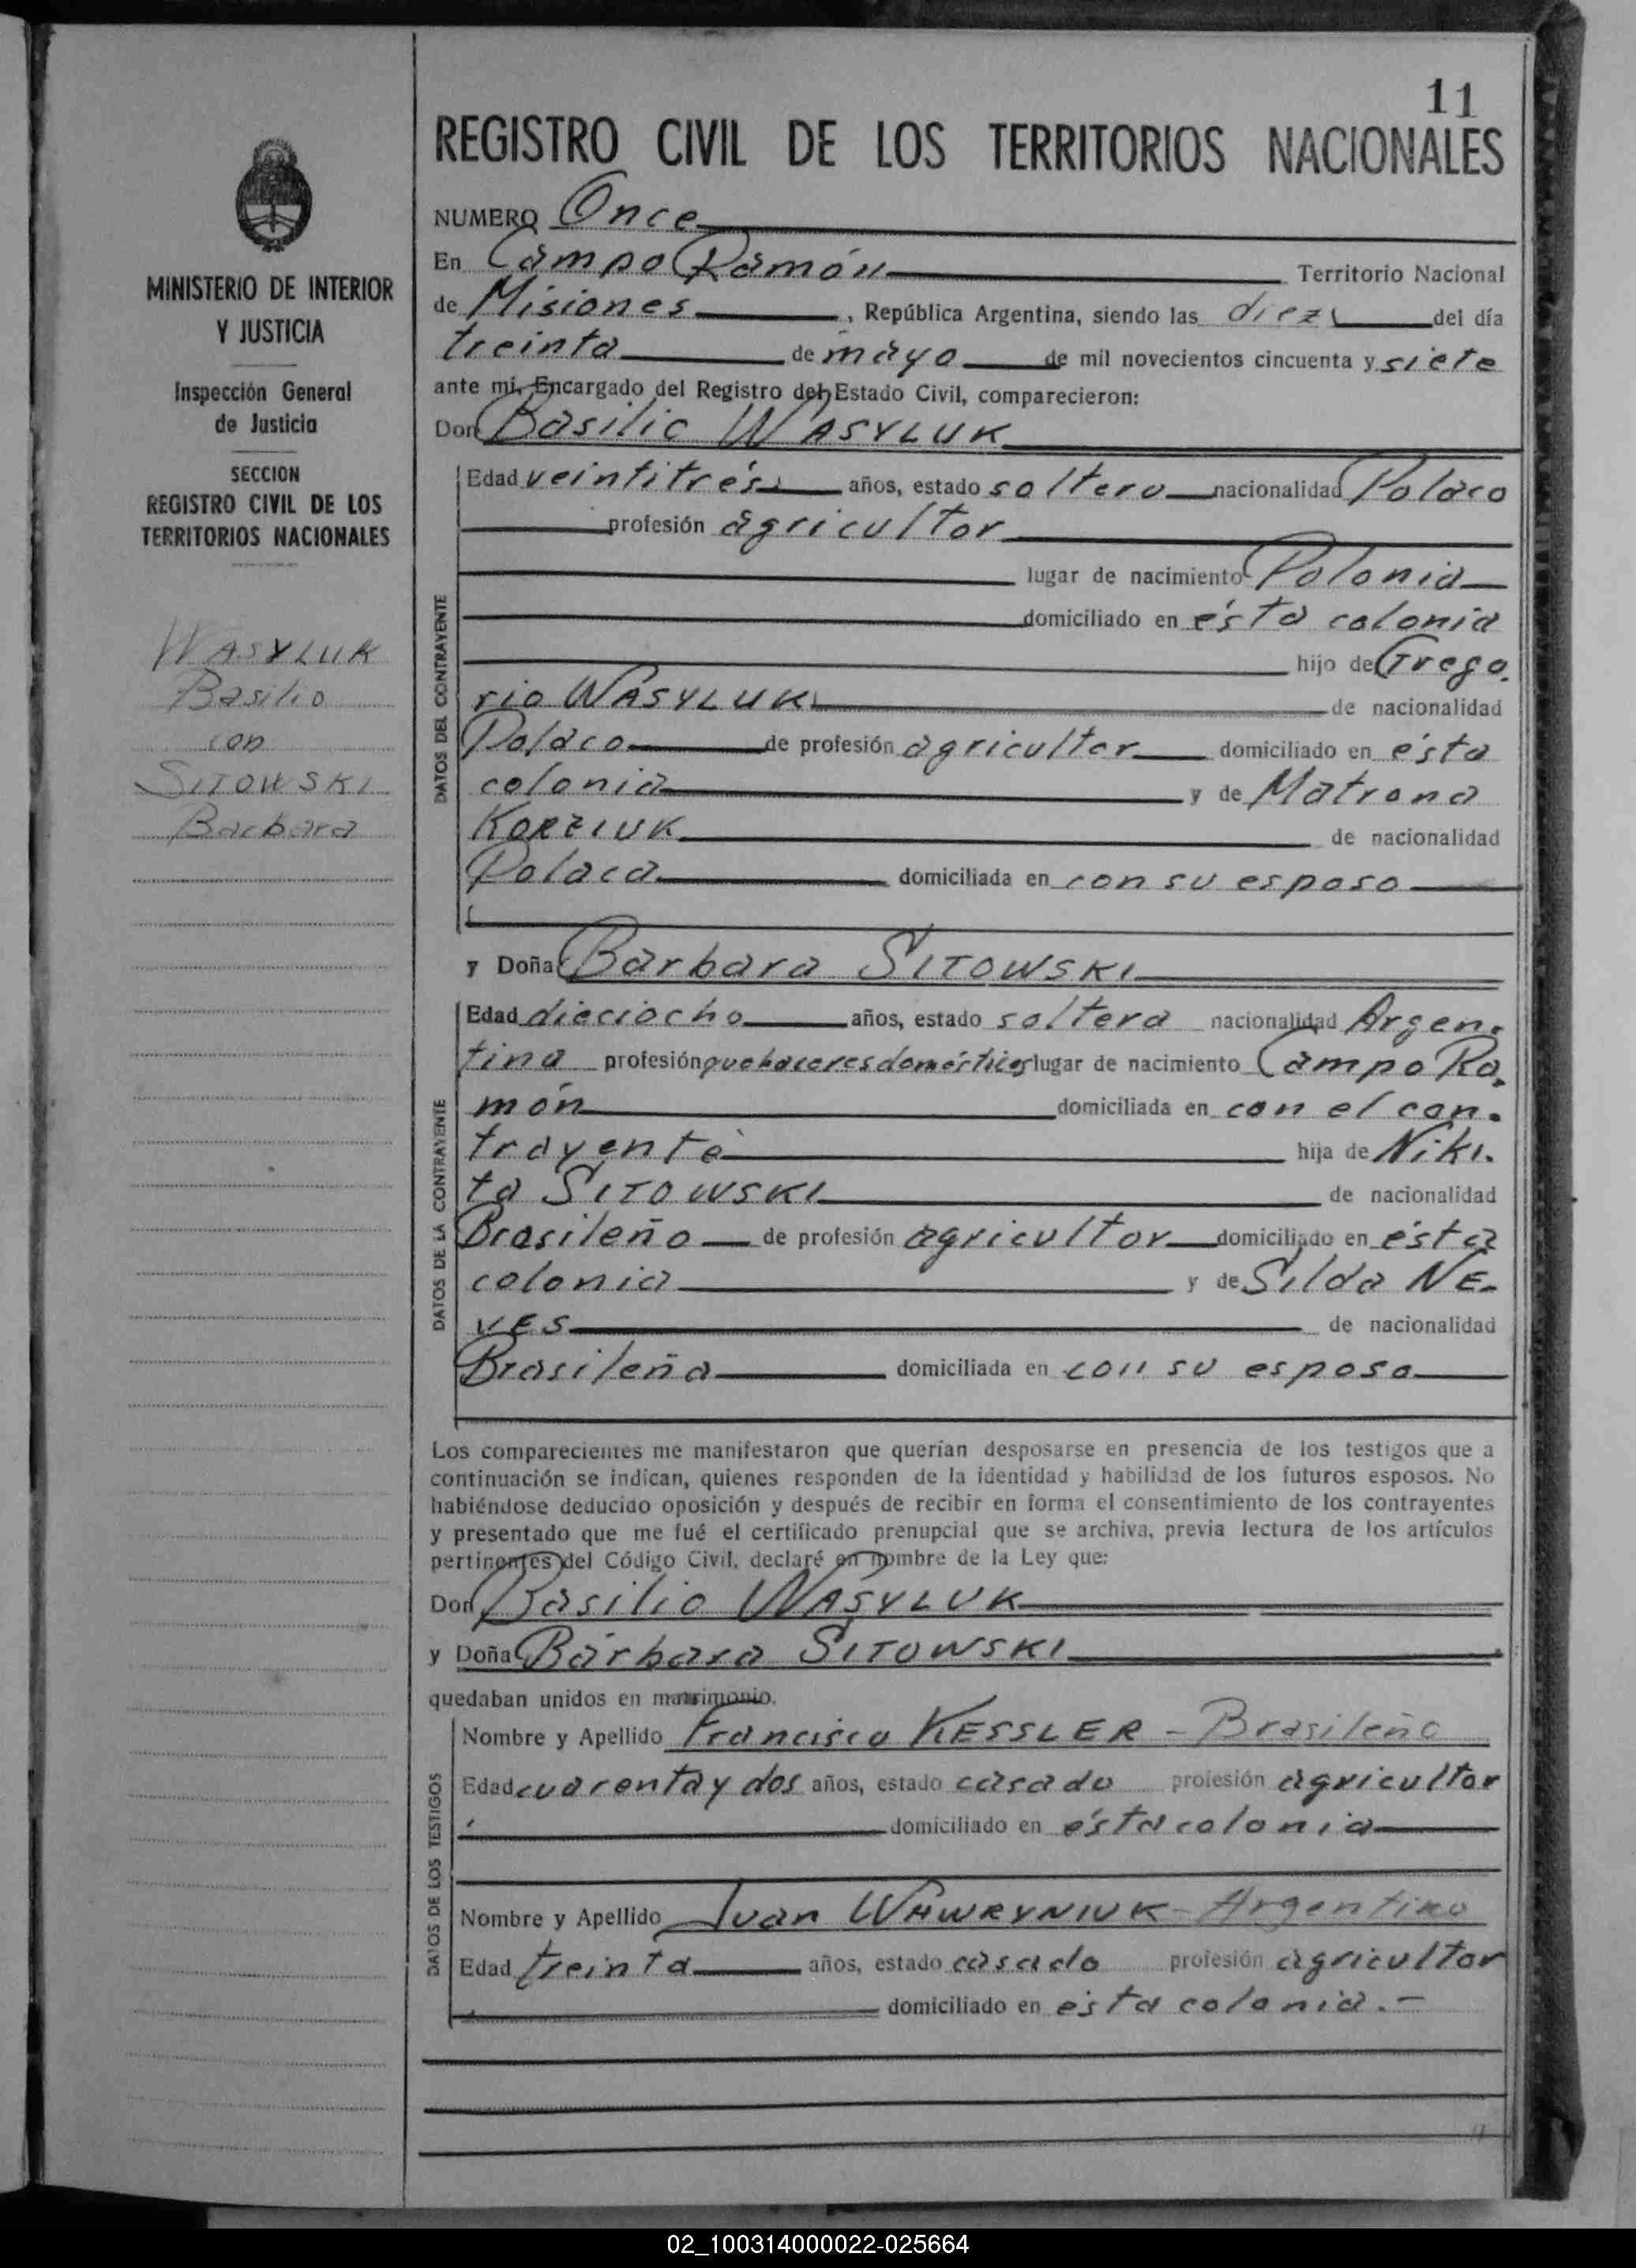 11
REGISTRO CIVIL DE LOS TERRITORIOS NACIONALES
MINISTERIO DE INTERIOR
Y JUSTICIA
Inspección General
de Justicia
SECCION
REGISTRO CIVIL DE LOS
TERRITORIOS NACIONALES
WASYLUK
Basilio
con
SITOWSKI
Barbara
NUMERO Once
En Campo Ramón Territorio Nacional
de Misiones, República Argentina, siendo las diez del día
treinta de mayo de mil novecientos cincuenta y siete
ante mí, Encargado del Registro del Estado Civil, comparecieron:
Don Basilio WASYLUK
DATOS DEL CONTRAYENTE
Edad veintitrés años, estado soltero nacionalidad Polaco
profesión agricultor
lugar de nacimiento Polonia
domiciliado en ésta colonia
hijo de Grego-
rio WASYLUK de nacionalidad
Polaco de profesión agricultor domiciliado en ésta
colonia y de Matrona
KORZIUK de nacionalidad
Polaca domiciliada en con su esposo
y Doña Bárbara SITOWSKI
DATOS DE LA CONTRAYENTE
Edad dieciocho años, estado soltera nacionalidad Argen-
tina profesión quehaceres domésticos lugar de nacimiento Campo Ra-
món domiciliada en con el con-
trayente hija de Niki-
ta SITOWSKI de nacionalidad
Brasileño de profesión agricultor domiciliado en ésta
colonia y de Silda NE-
VES de nacionalidad
Brasileña domiciliada en con su esposo
Los comparecientes me manifestaron que querían desposarse en presencia de los testigos que a
continuación se indican, quienes responden de la identidad y habilidad de los futuros esposos. No
habiéndose deducido oposición y después de recibir en forma el consentimiento de los contrayentes
y presentado que me fué el certificado prenupcial que se archiva, previa lectura de los artículos
pertinentes del Código Civil, declaré en nombre de la Ley que:
Don Basilio WASYLUK
y Doña Bárbara SITOWSKI
quedaban unidos en matrimonio.
DATOS DE LOS TESTIGOS
Nombre y Apellido Francisco KESSLER - Brasileño
Edad cuarenta y dos años, estado casado profesión agricultor
domiciliado en ésta colonia
Nombre y Apellido Juan WAWRYNIUK - Argentino
Edad treinta años, estado casado profesión agricultor
domiciliado en ésta colonia.-
02_100314000022-025664